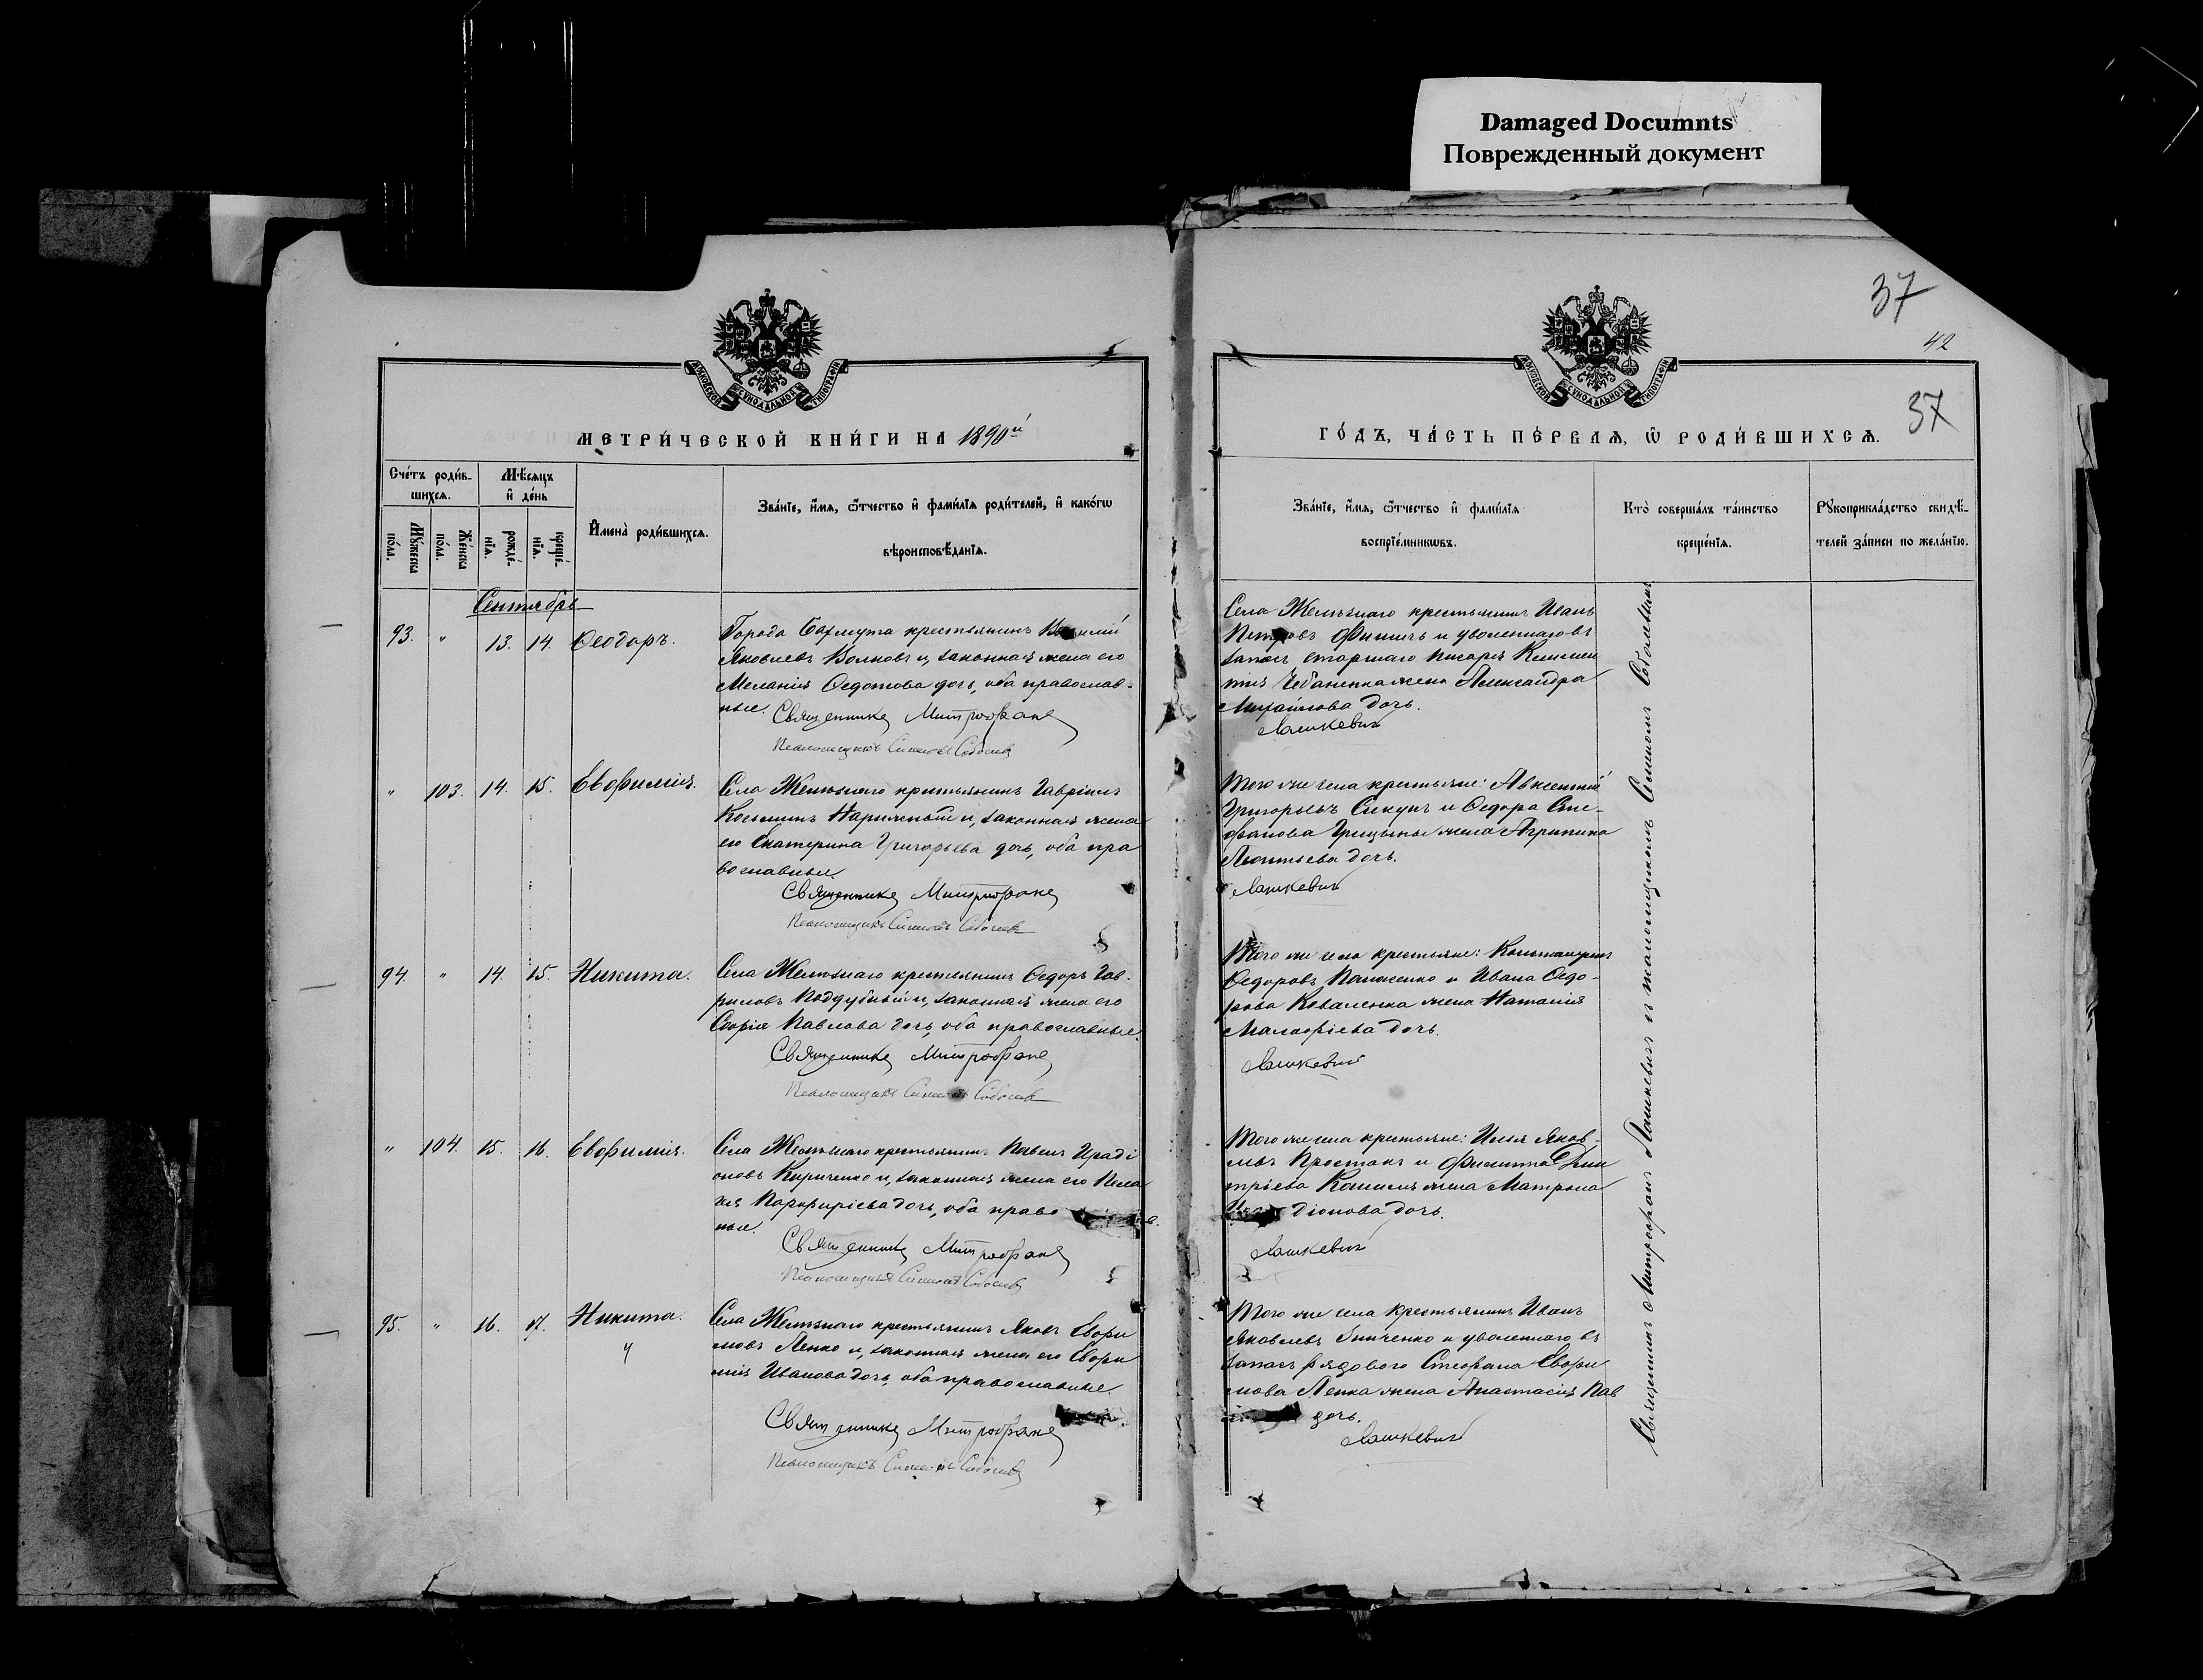 Damaged Documnts
Поврежденный документ
37
42
37
МЕТРИ́ЧЕСКОЙ КНИ́ГИ НА 1890й
ГО́ДЪ, ЧА́СТЬ ПЕ́РВАЯ, Ѡ҆ РОДИ́ВШИХСЯ.
Сче́тъ роди́в-
шихся.
Мѣ́сяцъ
и҆ де́нь
Му́жеска
по́ла.
Же́нска
по́ла.
рожде́-
нїя.
креще́-
нїя.
И҆мена̀ роди́вшихся.
Зва́нїе, и҆́мя, ѻ҆́тчество и҆ фами́лїя роди́телей, и҆ како́гѡ
вѣроисповѣ́данїя.
Зва́нїе, и҆́мя, ѻ҆́тчество и҆ фами́лїя
воспрїе́мникѡвъ.
Кто̀ соверша́лъ та́инство
креще́нїя.
Рꙋкоприкла́дство свидѣ́-
телей за́писи по жела́нїю.
Сентябрь
93. " 13. 14. Ѳеодоръ.
Города Бахмута крестьянинъ
Яковлевъ Волковъ и, законная жена его
Меланія Ѳедотова дочь, оба православ-
ные.
Священникъ Митрофанъ
Псаломщикъ Симеонъ
Села Желѣзнаго крестьянинъ Иванъ
Петровъ и уволеннаго въ
запасъ старшаго писаря Климен
тія Чебаненка жена Александра
Михайлова дочь.
Лашкевичъ
" 103. 14. 15. Евфимія.
Села Желѣзнаго крестьянинъ Гавріилъ
Косьминъ Наріжный и, законная жена
его Екатерина Григорьева дочь, оба пра
вославные.
Священникъ Митрофанъ
Псаломщикъ Симеонъ
Того же села крестьяне: Авксентій
Григорьевъ Сикунъ и Ѳедора Сте-
фанова Грицыны жена Агрипина
Леонтьева дочь.
Лашкевичъ
94. " 14. 15. Никита.
Села Желѣзнаго крестьянинъ Ѳедоръ Гав-
риловъ Поддубный и, законная жена его
Софія Павлова дочь, оба православные.
Священникъ Митрофанъ
Псаломщикъ Симеонъ
Того же села крестьяне: Константинъ
Ѳедоровъ Панасенко и Ивана Ѳедо-
рова Коваленка жена Наталія
Малофіева дочь.
Лашкевичъ
" 104. 15. 16. Евфимія.
Села Желѣзнаго крестьянинъ Павелъ Ираді
оновъ Кириченко и, законная жена его Пела
гія Порфиріева дочь, оба право
ные.
Священникъ Митрофанъ
Псаломщикъ Симеонъ
Того же села крестьяне: Илья Яков-
левъ Простакъ и Филиппа Дми
тріева жена Матрона
діонова дочь.
Лашкевичъ
95. " 16. 17. Никита.
Села Желѣзнаго крестьянинъ Яковъ Евфи
мовъ Лепко и, законная жена его Евфи
мія Иванова дочь, оба православные.
Священникъ Митрофанъ
Псаломщикъ Симеонъ
Того же села крестьянинъ Иванъ
Яковлевъ Зинченко и уволеннаго въ
запасъ рядового Стефана Евфи
мова Лепка жена Анастасія Пав
дочь.
Лашкевичъ
Священникъ Митрофанъ Лашкевичъ съ псаломщикомъ Симеономъ